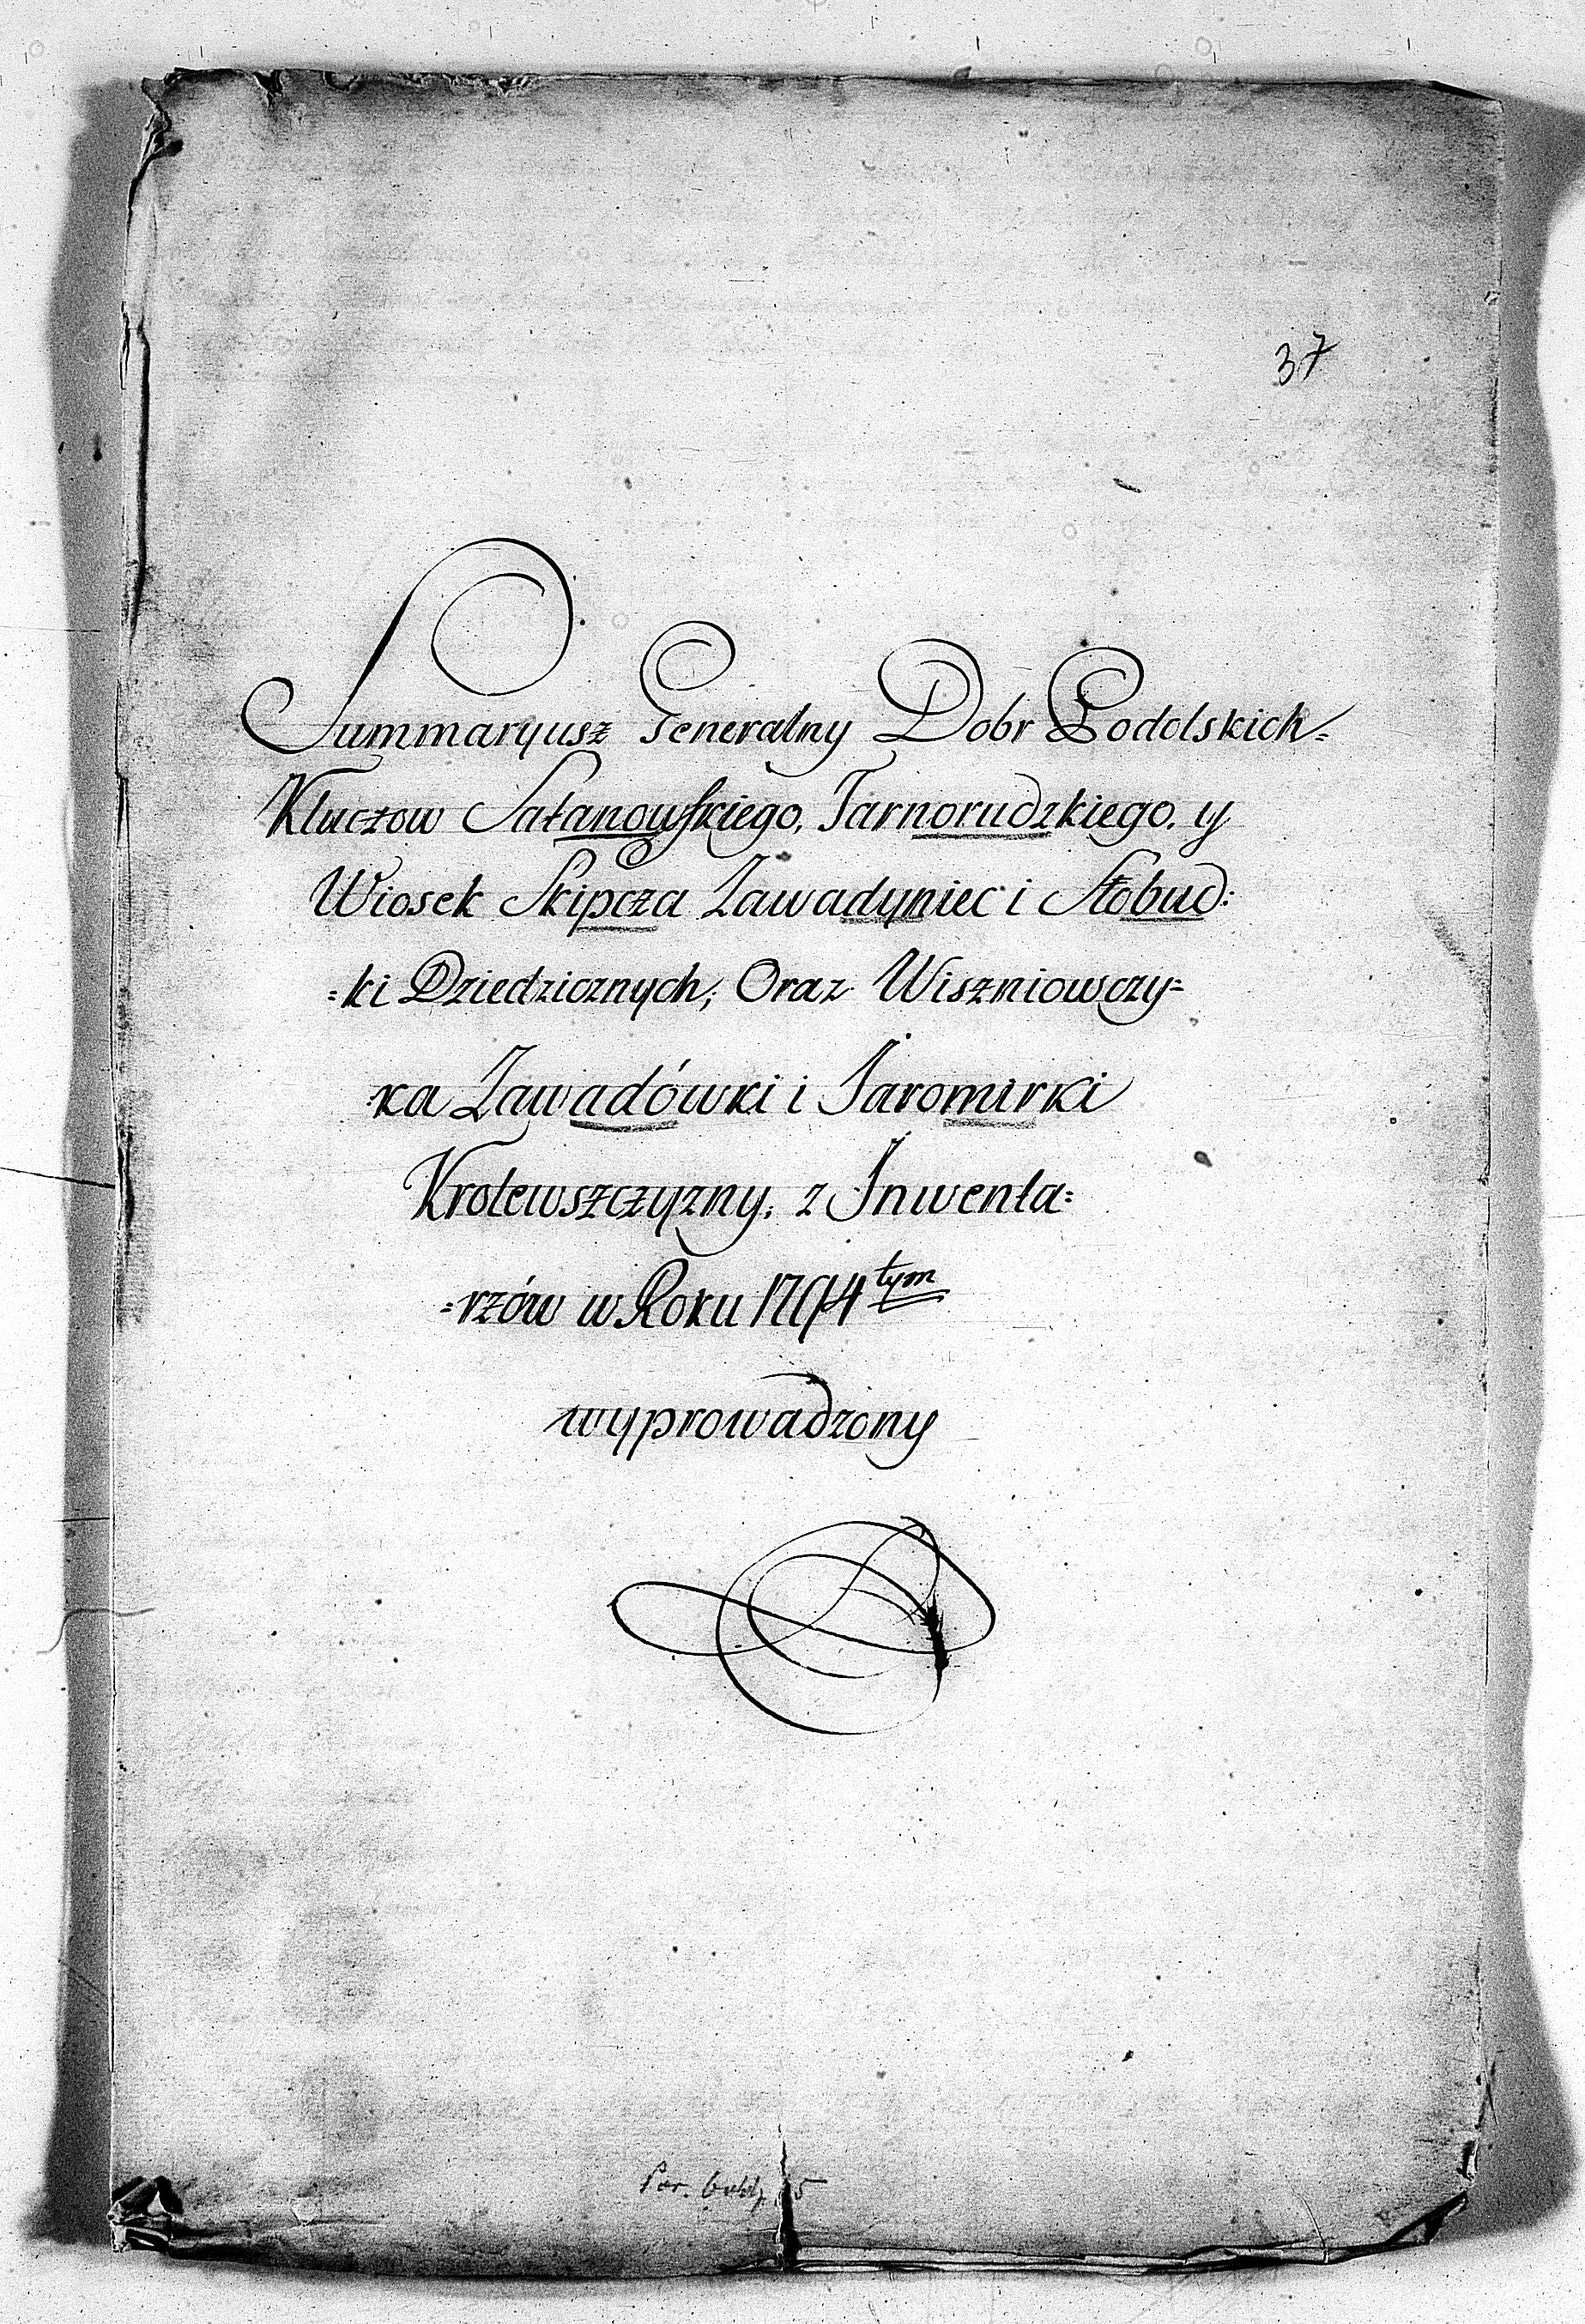 37
Summaryusz Generalny Dobr Podolskich
Kluczow Satanowskiego, Tarnorudzkiego, y
Wiosek Skipcza Zawadyniec i Słobud:
=ki Dziedzicznych; Oraz Wiszniowczy=
ka Zawadówki i Jaromirki
Krolewszczyzny, z Inwenta=
=rzów w Roku 1794tym
wyprowadzony